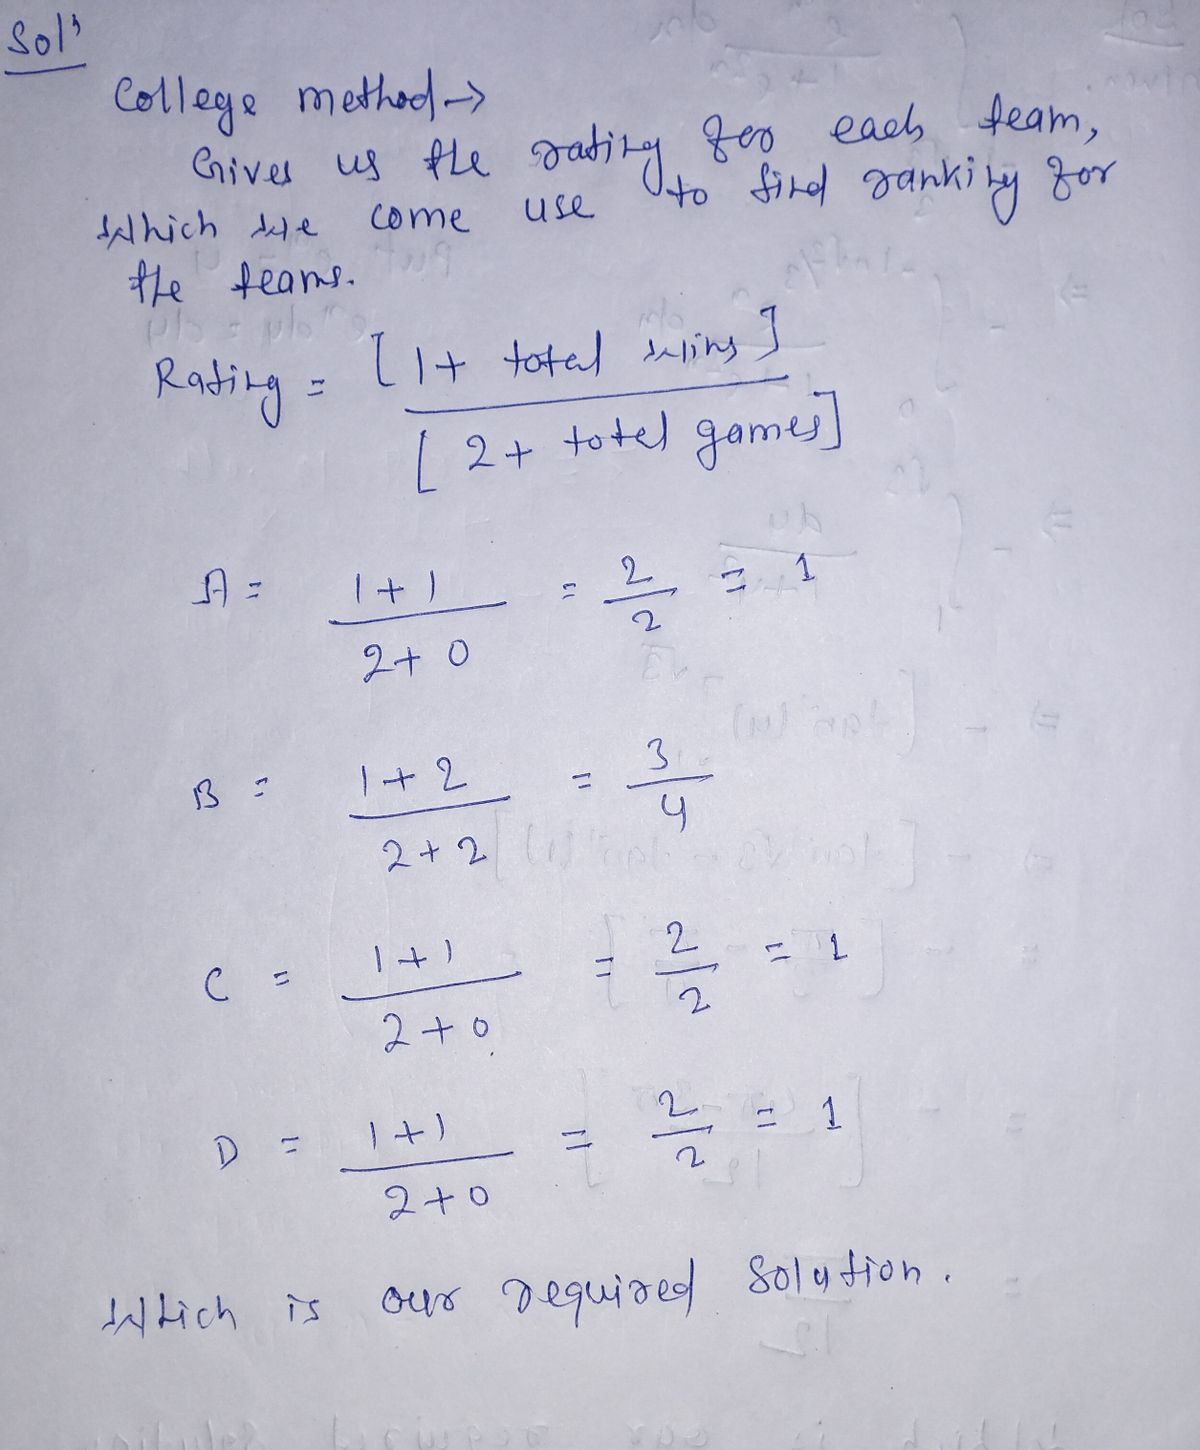 Sol'
College method →
Gives us the rating for each team,
which we come use to find ranking for
the teams.
Rating = [1 + total wins]
[2 + total games]
A = 1+1 / 2+0 = 2/2 = 1
B = 1+2 / 2+2 = 3/4
C = 1+1 / 2+0 = 2/2 = 1
D = 1+1 / 2+0 = 2/2 = 1
Which is our required solution.